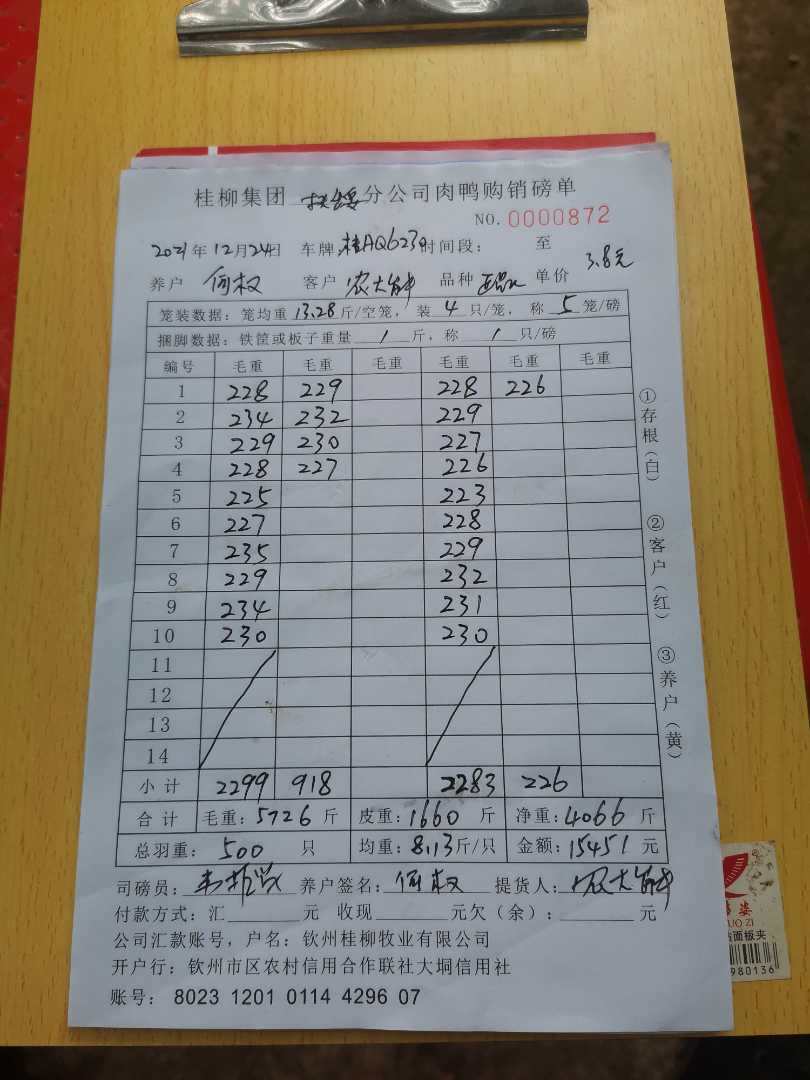 桂柳集团 扶绥 分公司肉鸭购销磅单
NO. 0000872
2021年12月24日 车牌:桂AQ623 时间段: 至
养户 何权 客户 农大 品种 单价 3.8元
笼装数据: 笼均重 13.28 斤/空笼, 装 4 只/笼, 称 5 笼/磅
捆脚数据: 铁筐或板子重量 / 斤, 称 / 只/磅
编号 毛重 毛重 毛重 毛重 毛重 毛重
1 228 229 228 226
2 234 232 229
3 229 230 227
4 228 227 226
5 225 223
6 227 228
7 235 229
8 229 232
9 234 231
10 230 230
11
12
13
14
小计 2299 918 2283 226
合计 毛重: 5726 斤 皮重: 1660 斤 净重: 4066 斤
总羽重: 500 只 均重: 8.13斤/只 金额: 15451 元
司磅员: 养户签名: 何权 提货人: 农大
付款方式: 汇 元 收现 元欠(余): 元
公司汇款账号, 户名: 钦州桂柳牧业有限公司
开户行: 钦州市区农村信用合作联社大垌信用社
账号: 8023 1201 0114 4296 07
①存根(白)
②客户(红)
③养户(黄)
姿
UO ZI
面板夹
980136